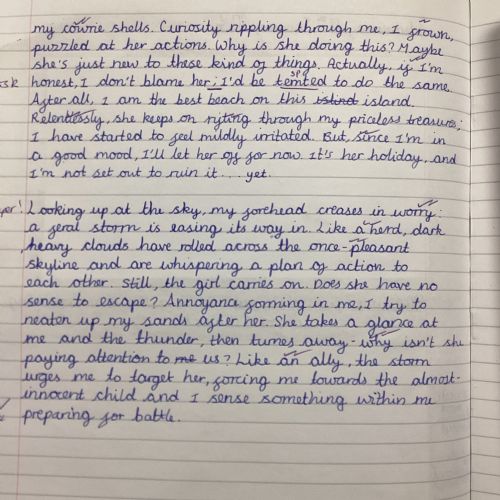 my cowrie shells. Curiosity rippling through me, I frown,
puzzled at her actions. Why is she doing this? Maybe
she's just new to these kind of things. Actually, if I'm
honest, I don't blame her; I'd be temted to do the same.
sp
After all, I am the best beach on this island island.
Relentlessly, she keeps on rifting through my priceless treasure;
I have started to feel mildly irritated. But, since I'm in
a good mood, I'll let her off for now. It's her holiday, and
I'm not set out to ruin it... yet.
Looking up at the sky, my forehead creases in worry:
a feral storm is easing its way in. Like a herd, dark
heavy clouds have rolled across the once-pleasant
skyline and are whispering a plan of action to
each other. Still, the girl carries on. Does she have no
sense to escape? Annoyance forming in me, I try to
neaten up my sands after her. She takes a glance at
me and the thunder, then turnes away - why isn't she
paying attention to me us? Like an ally, the storm
urges me to target her, forcing me towards the almost-
innocent child and I sense something within me
preparing for battle.